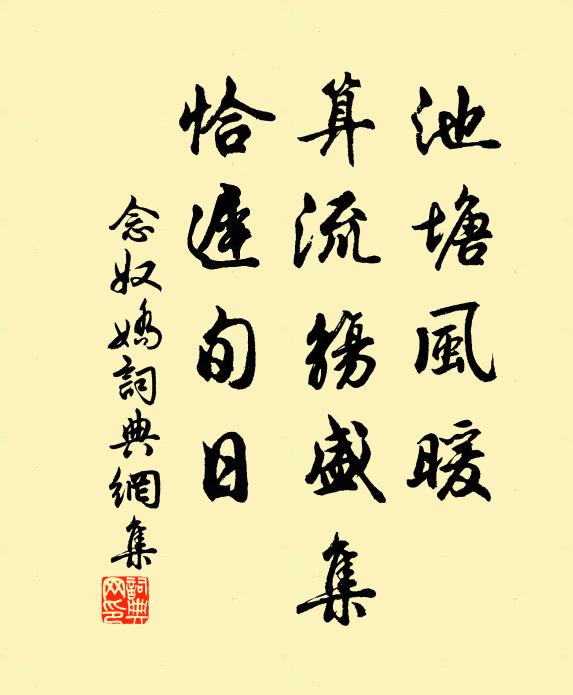 池塘風暖
算流觴盛集
恰遲旬日
念奴嬌詞典網集
詞典网印